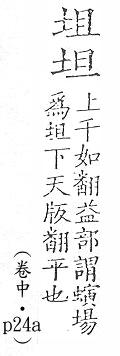 坥坦
上千如翻益部謂螾場
爲坥下天版翻平也
(卷中・p24a)